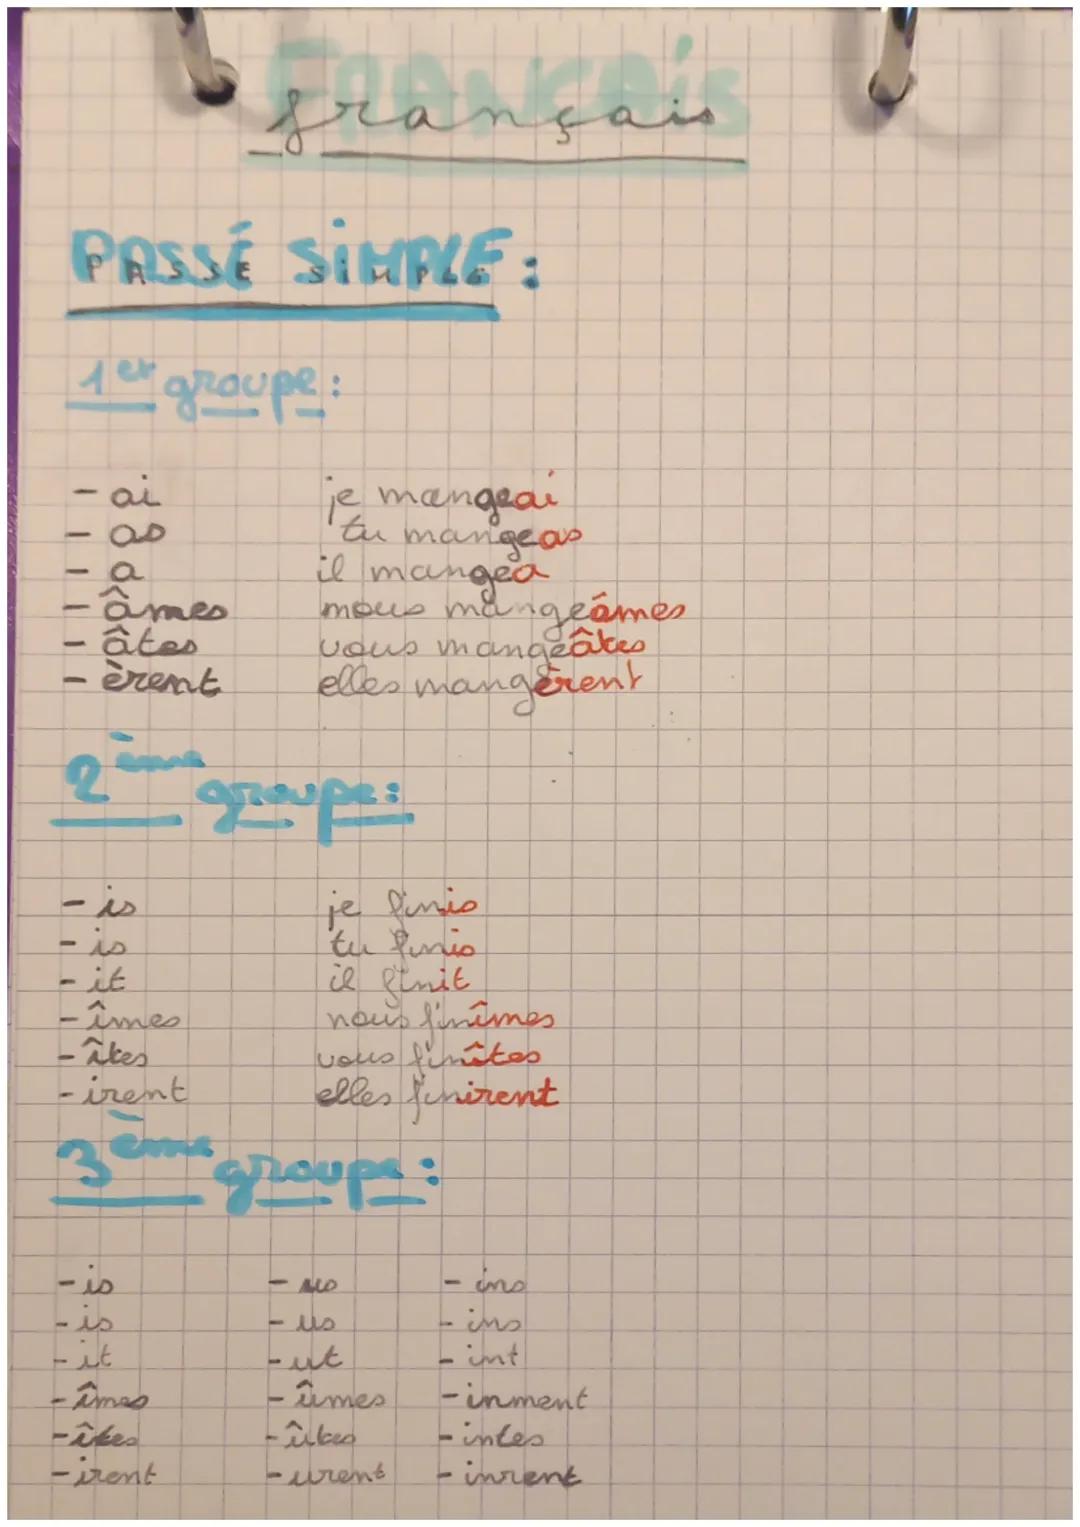 FRANÇAIS
français
PASSÉ SIMPLE :
PASSE SIMPLE
1er groupe :
- ai je mangeai
- as tu mangeas
- a il mangea
- âmes nous mangeâmes
- âtes vous mangeâtes
- èrent elles mangèrent
2ème groupe :
- is je finis
- is tu finis
- it il finit
- îmes nous finîmes
- îtes vous finîtes
- irent elles finirent
3ème groupe :
- is - us - ins
- is - us - ins
- it - ut - int
- îmes - ûmes - inment
- îtes - ûtes - intes
- irent - urent - inrent